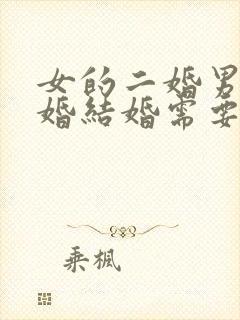 女的二婚男
婚結婚需要
乘楓